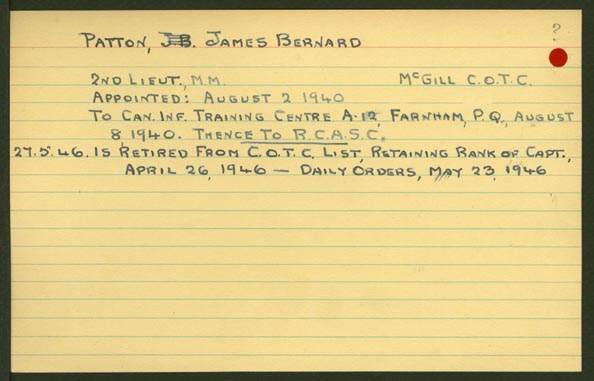 ?
PATTON, J.B. JAMES BERNARD
2ND LIEUT., M.M. McGILL C.O.T.C.
APPOINTED: AUGUST 2 1940
TO CAN. INF. TRAINING CENTRE A-12, FARNHAM, P.Q., AUGUST
8, 1940. THENCE TO R.C.A.S.C.
27.5.46. IS RETIRED FROM C.O.T.C. LIST, RETAINING RANK OF CAPT.,
APRIL 26, 1946 — DAILY ORDERS, MAY 23, 1946